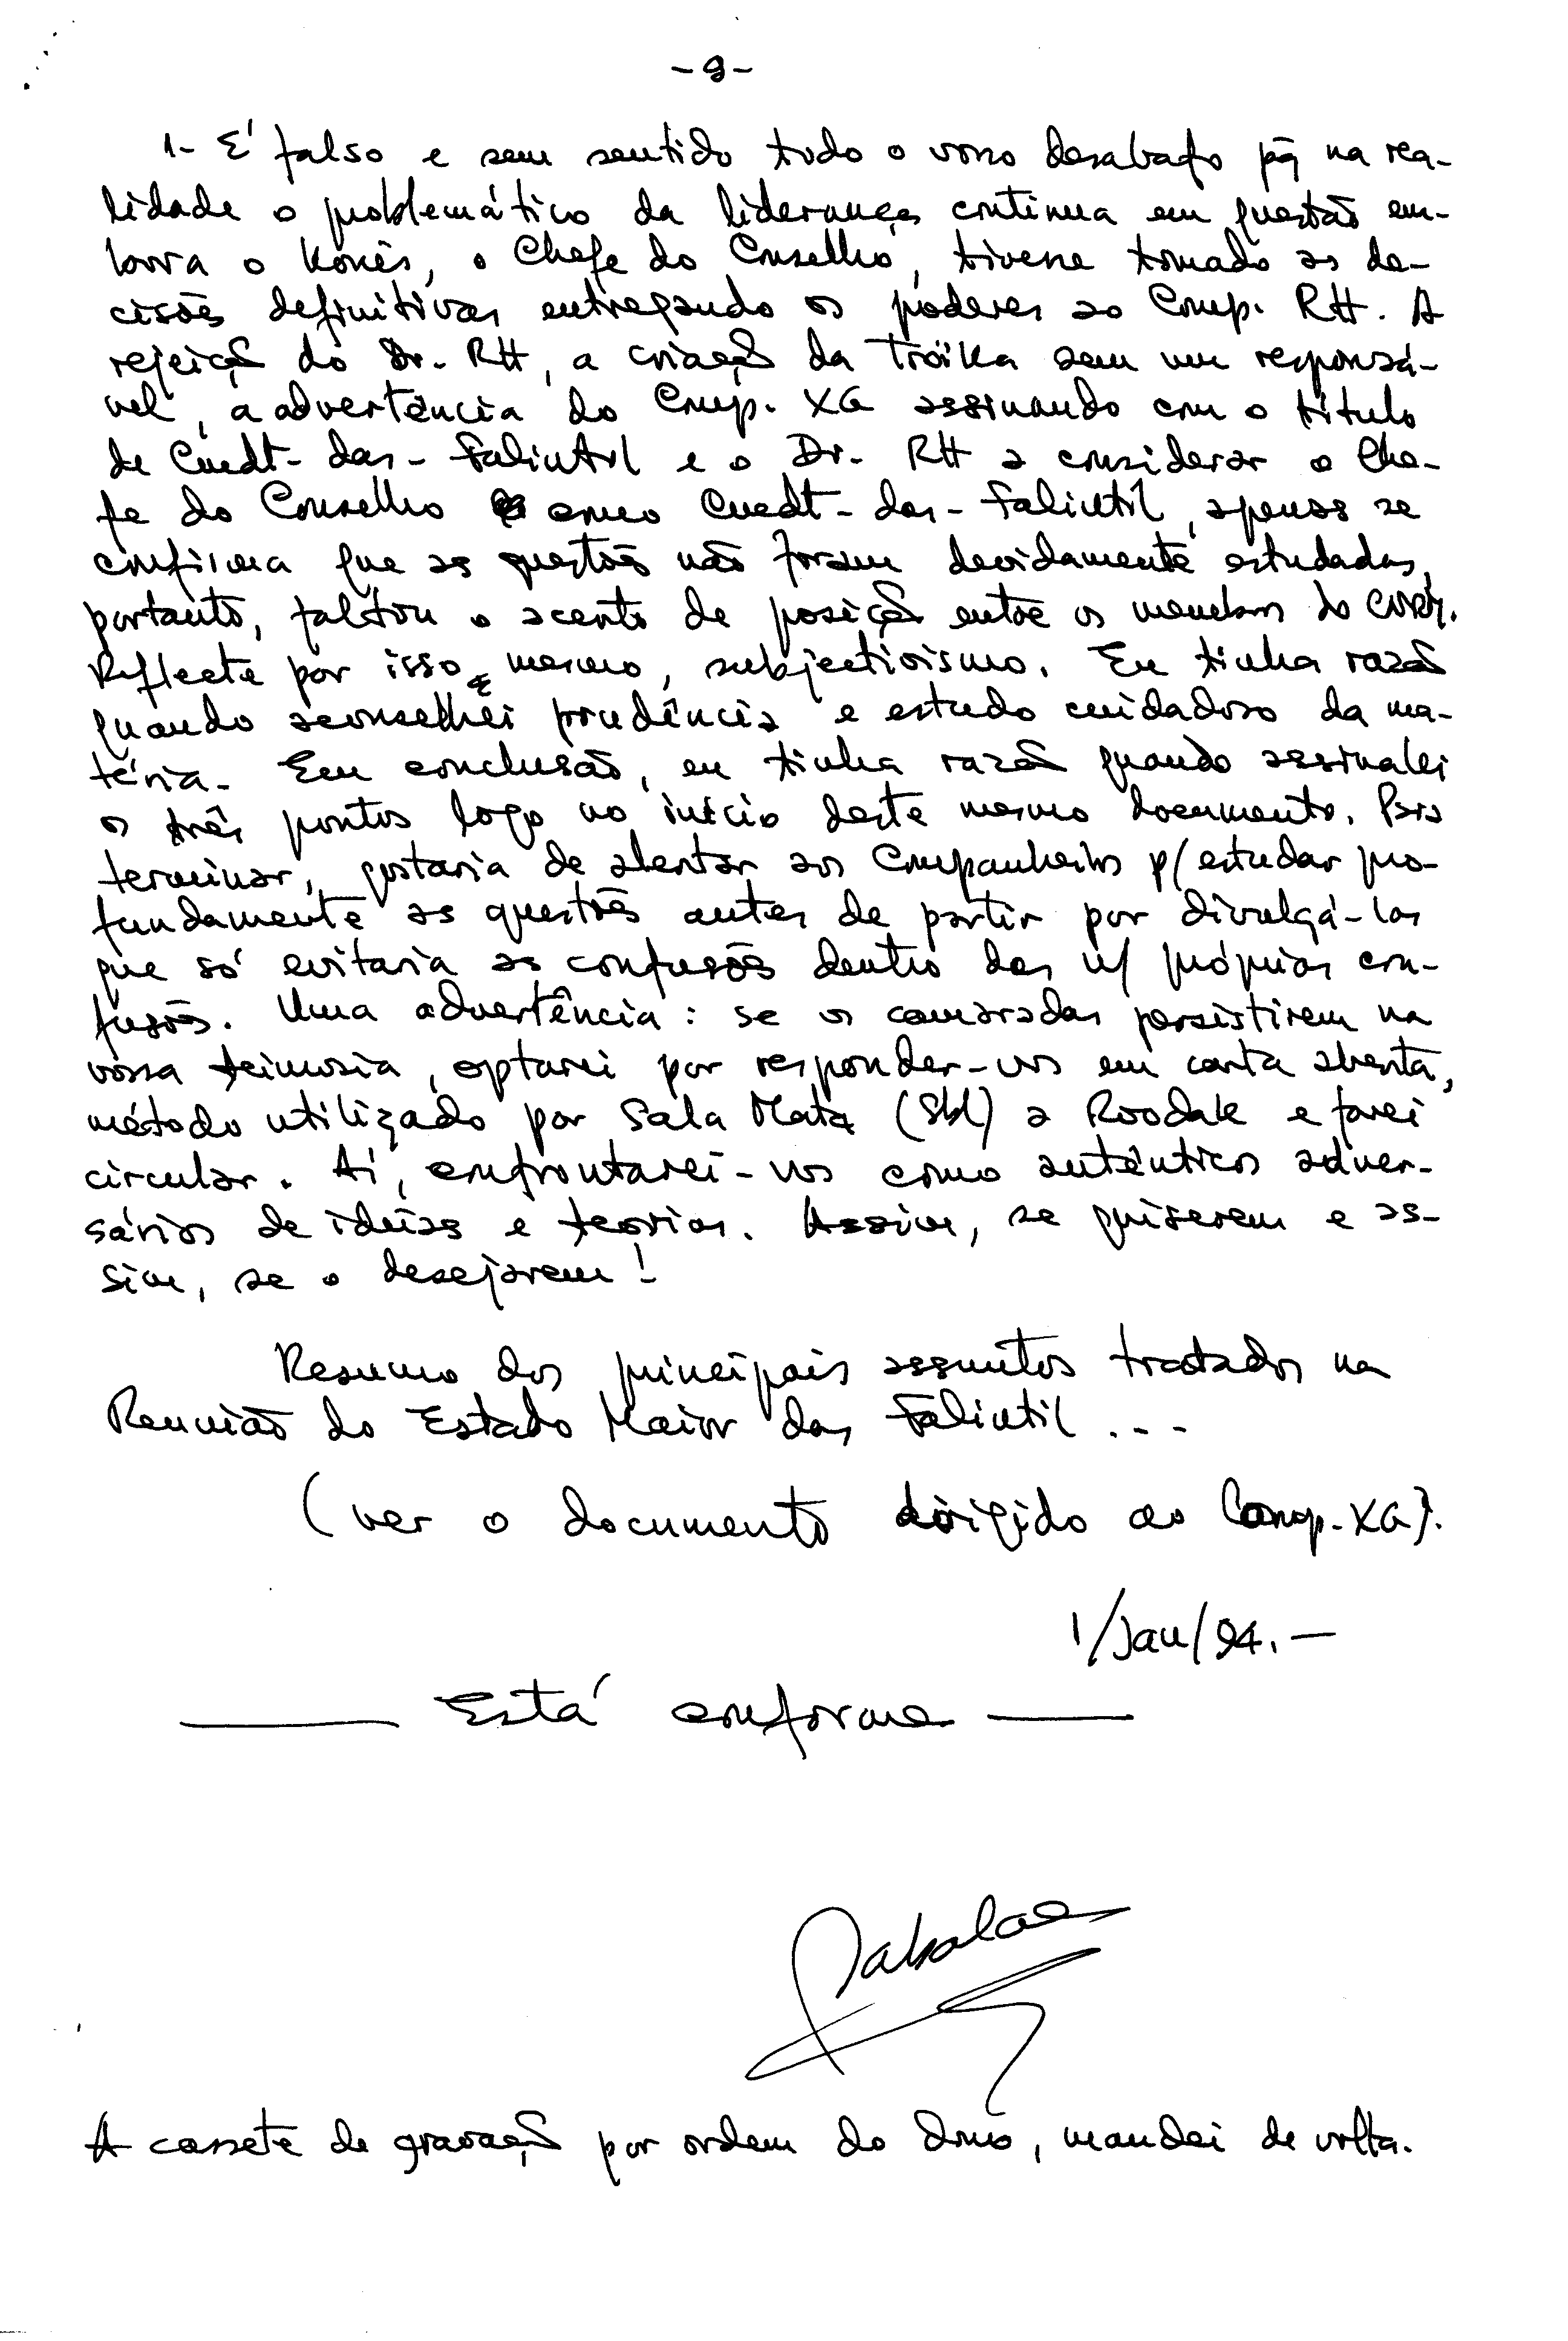 - 9 -
1- É falso e sem sentido todo o vosso desabafo pq na rea-
lidade o problemático da liderança continua em questão em-
bora o Konis, o Chefe do Conselho, tivesse tomado as de-
cisões definitivas entregando os poderes ao Comp. RH. A
rejeição do Dr. RH, a criação da Tróika sem um responsá-
vel, a advertência do Comp. XG assinando com o título
de Cmdt-das-Falintil e o Dr. RH a considerar o Che-
fe do Conselho como Cmdt-das-Falintil, apenas se
confirma que as questões não foram devidamente estudadas,
portanto, faltou o acento de posição entre os membros do CNRM.
Reflecte por isso mesmo, subjectivismo. Eu tinha razão
quando aconselhei prudência e estudo cuidadoso da ma-
téria. Em conclusão, eu tinha razão quando assinalei
os três pontos logo no início deste mesmo documento. Para
terminar, gostaria de alentar aos Companheiros p/ estudar pro-
fundamente as questões antes de partir por divulgá-las
que só evitaria as confusões dentro das n/ próprias con-
fusões. Uma advertência: se os camaradas persistirem na
vossa teimosia, optarei por responder-vos em carta aberta,
método utilizado por Sala Mata (Sbl) a Roodak e farei
circular. Aí, confrontarei-vos como autênticos adver-
sários de ideias e teorias. Assim, se quiserem e as-
sim, se o desejarem!
Resumo dos principais assuntos tratados na
Reunião do Estado Maior das Falintil...
(ver o documento dirigido ao Comp. XG).
1/Jan/94.-
Está conforme
A cassete de gravação por ordem do dono, mandei de volta.